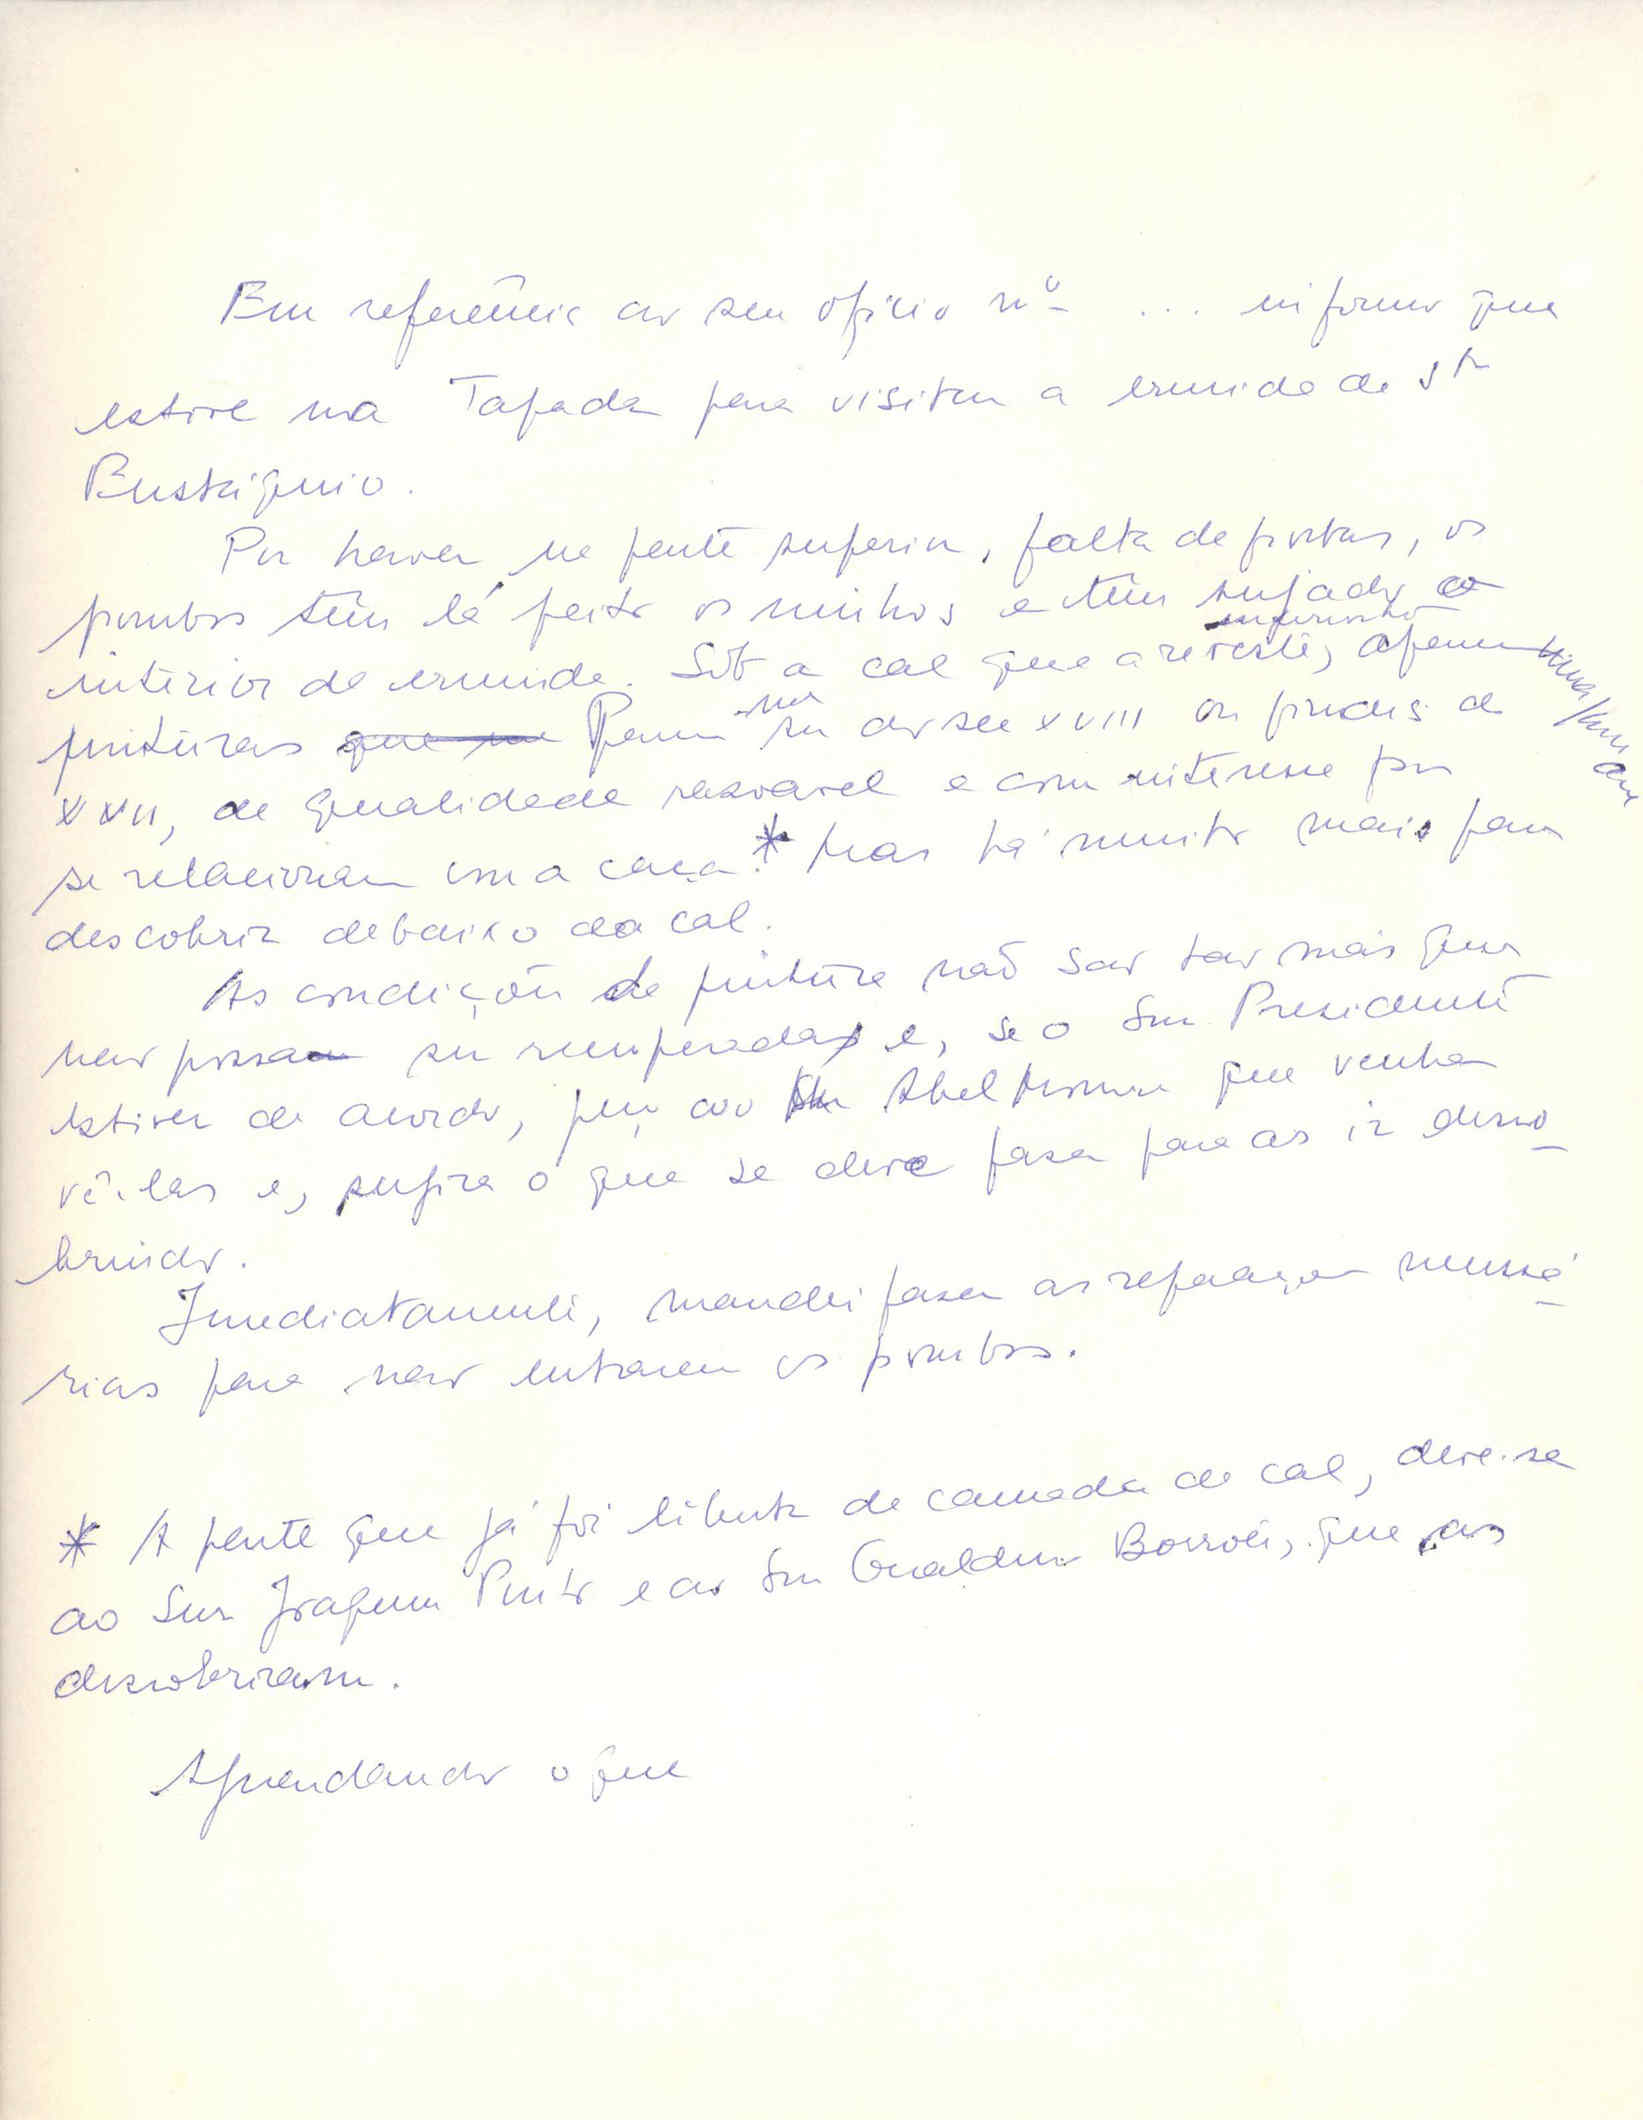 Em referência ao seu ofício nº ... informo que
estive na Tapada para visitar a ermida de Stº
Eustáquio.
Por haver na parte superior, falta de portas, os
pombos têm lá feito os ninhos e têm sujado o
interior da ermida. Sob a cal que a reveste, aparecem
pinturas que Parecem-me ser do sec XVIII ou finais do
XVII, de qualidade razoavel e com interesse por
se relacionarem com a caça.* Mas há muito mais para
descobrir debaixo da cal.
As condições da pintura não são tão más que
não possa ser recuperada e, se o Snr Presidente
estiver de acordo, peço ao Abel Moura que venha
vê-las e, sugira o que se deve fazer para as ir desco-
brindo.
Imediatamente, mandei fazer as reparações necessá-
rias para não entrarem os pombos.
* A parte que já foi liberta da camada de cal, deve-se
ao Snr Joaquim Pinto e ao Snr Gualdino Borrões, que as
descobriram.
Aguardando o que